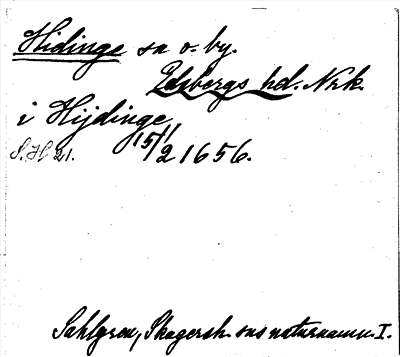 Hidinge sn o. by.
Edsbergs hd. Nrk.
i Hijdinge,
S.H 21. 15/11 2 1656.
Sahlgren, Skagersh. sns naturnamn I.